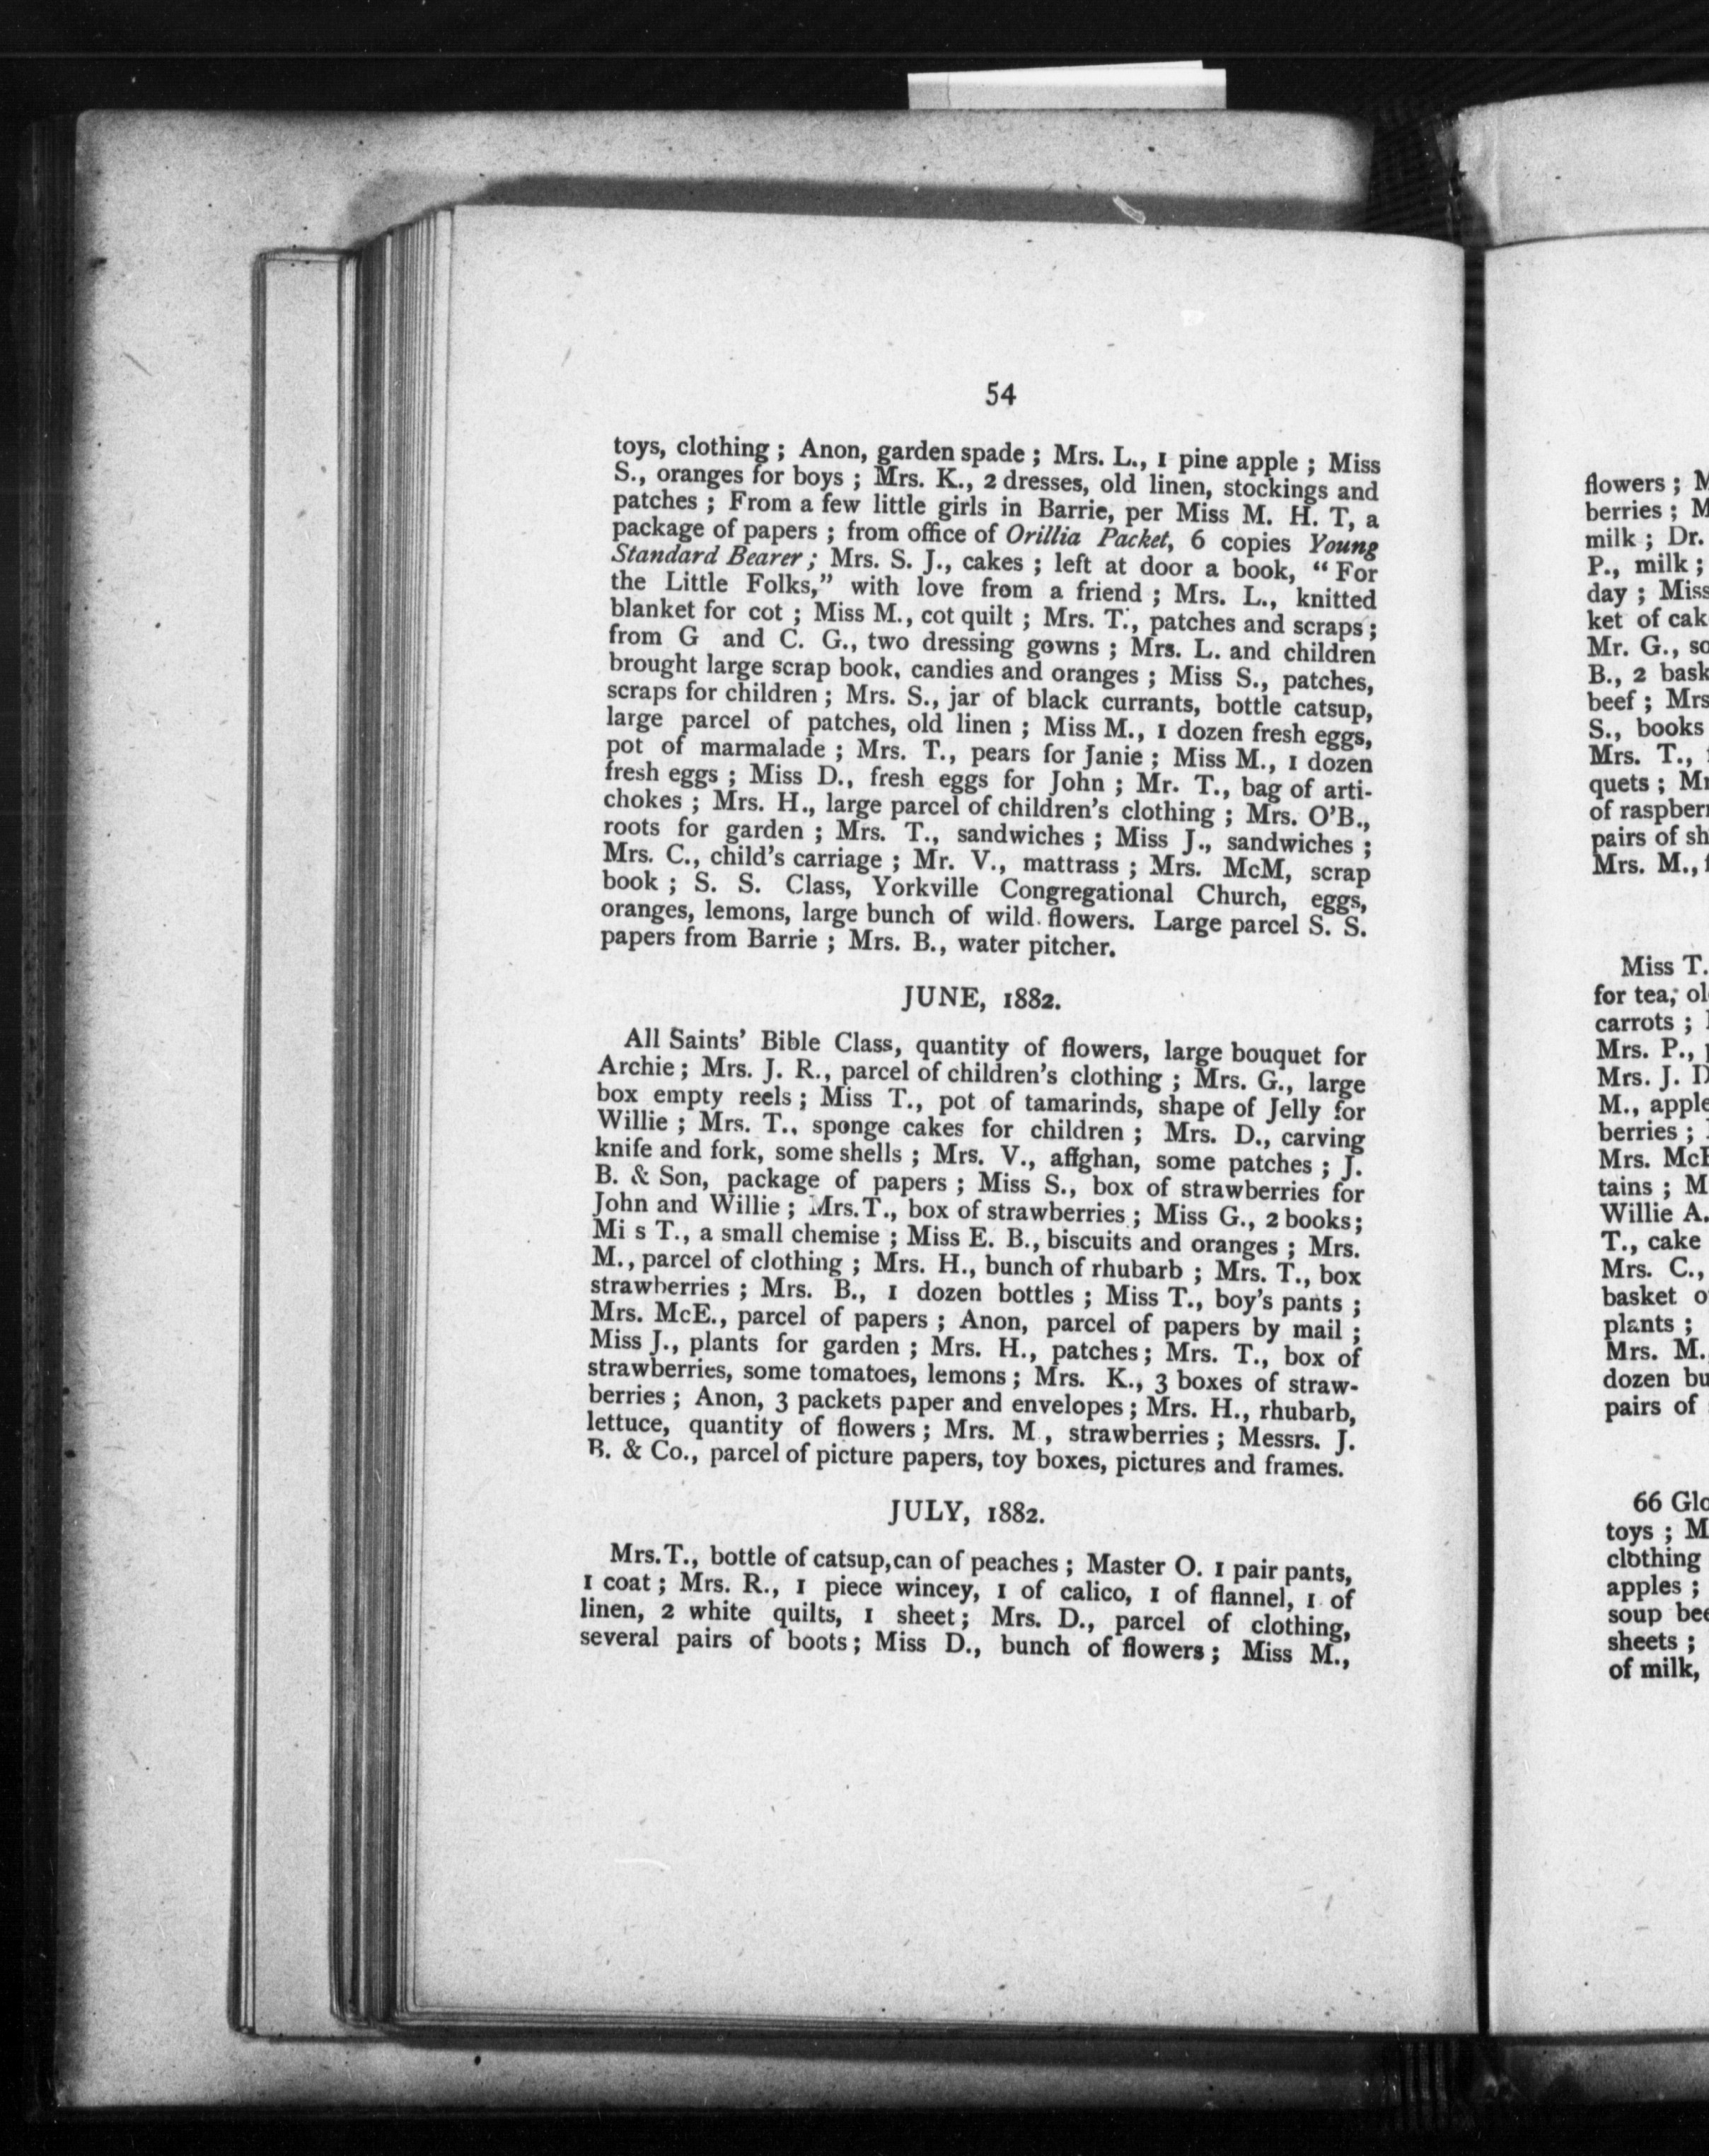 54
toys, clothing ; Anon, garden spade ; Mrs. L., 1 pine apple ; Miss
S., oranges for boys ; Mrs. K., 2 dresses, old linen, stockings and
patches ; From a few little girls in Barrie, per Miss M. H. T, a
package of papers ; from office of Orillia Packet, 6 copies Young
Standard Bearer ; Mrs. S. J., cakes ; left at door a book, “ For
the Little Folks,” with love from a friend ; Mrs. L., knitted
blanket for cot ; Miss M., cot quilt ; Mrs. T., patches and scraps ;
from G and C. G., two dressing gowns ; Mrs. L. and children
brought large scrap book, candies and oranges ; Miss S., patches,
scraps for children ; Mrs. S., jar of black currants, bottle catsup,
large parcel of patches, old linen ; Miss M., 1 dozen fresh eggs,
pot of marmalade ; Mrs. T., pears for Janie ; Miss M., 1 dozen
fresh eggs ; Miss D., fresh eggs for John ; Mr. T., bag of arti-
chokes ; Mrs. H., large parcel of children’s clothing ; Mrs. O’B.,
roots for garden ; Mrs. T., sandwiches ; Miss J., sandwiches ;
Mrs. C., child’s carriage ; Mr. V., mattrass ; Mrs. McM, scrap
book ; S. S. Class, Yorkville Congregational Church, eggs,
oranges, lemons, large bunch of wild flowers. Large parcel S. S.
papers from Barrie ; Mrs. B., water pitcher.
JUNE, 1882.
All Saints’ Bible Class, quantity of flowers, large bouquet for
Archie ; Mrs. J. R., parcel of children’s clothing ; Mrs. G., large
box empty reels ; Miss T., pot of tamarinds, shape of Jelly for
Willie ; Mrs. T., sponge cakes for children ; Mrs. D., carving
knife and fork, some shells ; Mrs. V., affghan, some patches ; J.
B. & Son, package of papers ; Miss S., box of strawberries for
John and Willie ; Mrs. T., box of strawberries ; Miss G., 2 books ;
Mi s T., a small chemise ; Miss E. B., biscuits and oranges ; Mrs.
M., parcel of clothing ; Mrs. H., bunch of rhubarb ; Mrs. T., box
strawberries ; Mrs. B., 1 dozen bottles ; Miss T., boy’s pants ;
Mrs. McE., parcel of papers ; Anon, parcel of papers by mail ;
Miss J., plants for garden ; Mrs. H., patches ; Mrs. T., box of
strawberries, some tomatoes, lemons ; Mrs. K., 3 boxes of straw-
berries ; Anon, 3 packets paper and envelopes ; Mrs. H., rhubarb,
lettuce, quantity of flowers ; Mrs. M , strawberries ; Messrs. J.
B. & Co., parcel of picture papers, toy boxes, pictures and frames.
JULY, 1882.
Mrs. T., bottle of catsup, can of peaches ; Master O. 1 pair pants,
1 coat ; Mrs. R., 1 piece wincey, 1 of calico, 1 of flannel, 1 of
linen, 2 white quilts, 1 sheet ; Mrs. D., parcel of clothing,
several pairs of boots ; Miss D., bunch of flowers ; Miss M.,
flowers ; M
berries ; M
milk ; Dr.
P., milk ;
day ; Miss
ket of cak
Mr. G., so
B., 2 bask
beef ; Mrs
S., books
Mrs. T.,
quets ; Mr
of raspberr
pairs of sh
Mrs. M.,
Miss T.
for tea, ol
carrots ;
Mrs. P.,
Mrs. J. D
M., apple
berries ;
Mrs. McE
tains ; M
Willie A.
T., cake
Mrs. C.,
basket o
plants ;
Mrs. M.
dozen bu
pairs of
66 Glo
toys ; M
clothing
apples ;
soup bee
sheets ;
of milk,